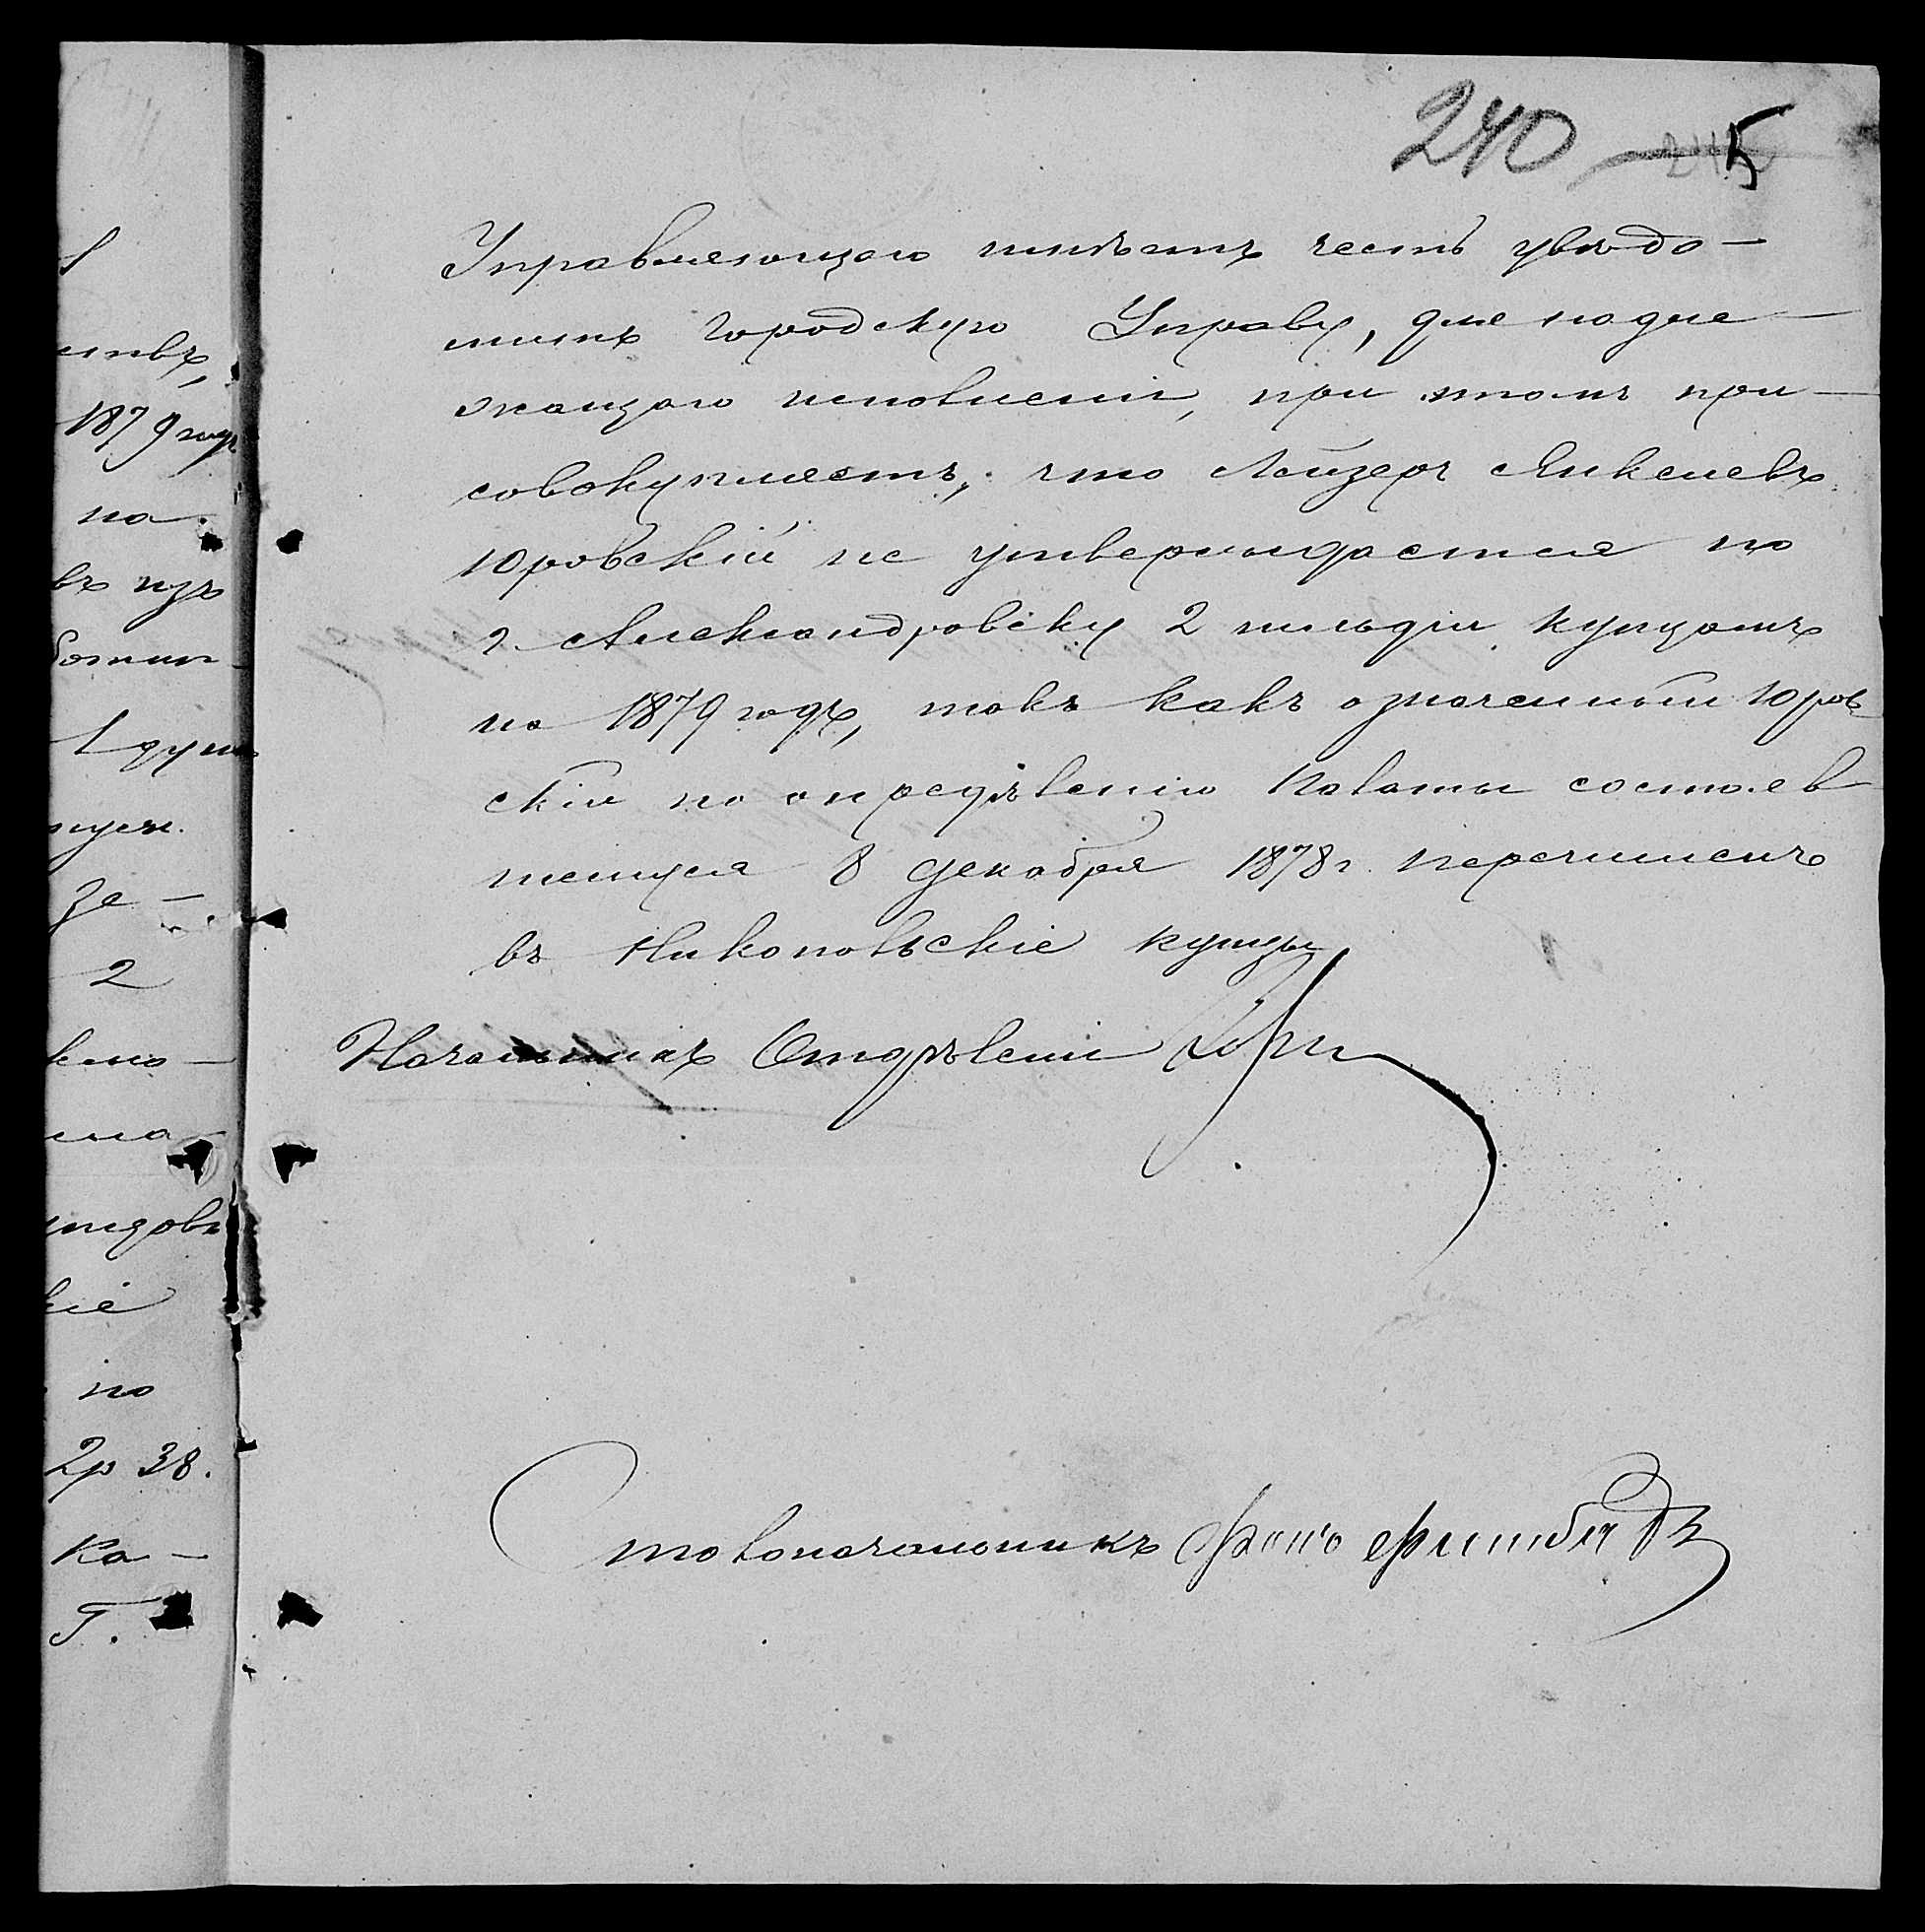 240 5
Управляющаго имѣетъ честь увѣдо-
мить Городскую Управу, для надле-
жащаго исполненія, при этомъ при-
совокупляетъ, что Лейзеръ Янкелевъ
Юровскій не утверждается по
г. Александровску 2 гильдіи купцомъ
на 1879 годъ, такъ какъ означенный Юров
скій по опредѣленію Палаты состояв
шемуся 8 декабря 1878 г. перечисленъ
въ Никопольскіе купцы
Начальникъ Отдѣленія
Столоначальникъ
1879 года
на
въ изъ
1 душ
2
кіе
по
2р 38.
ка-
Г.